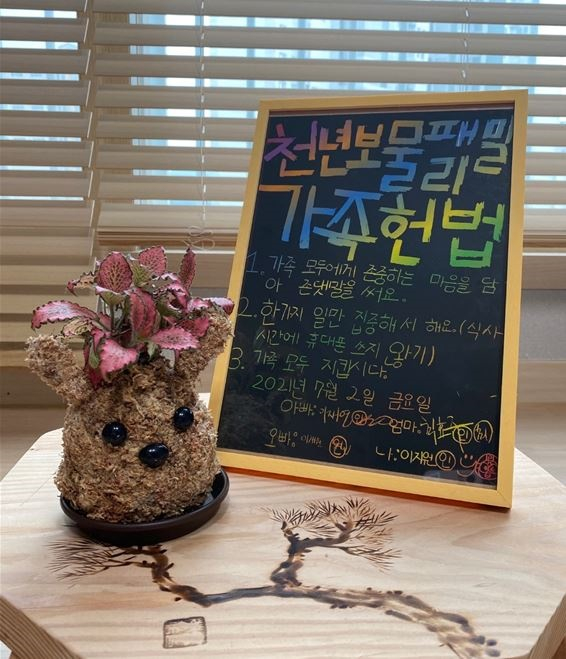 천년보물패밀
리
가족헌법
1. 가족 모두에게 존중하는 마음을 담
아 존댓말을 써요.
2. 한가지 일만 집중해서 해요.(식사
시간에 휴대폰 쓰지 않기)
3. 가족 모두 지킵시다.
2021년 7월 2일 금요일
아빠: 엄마:
오빠: 나:이지원 인